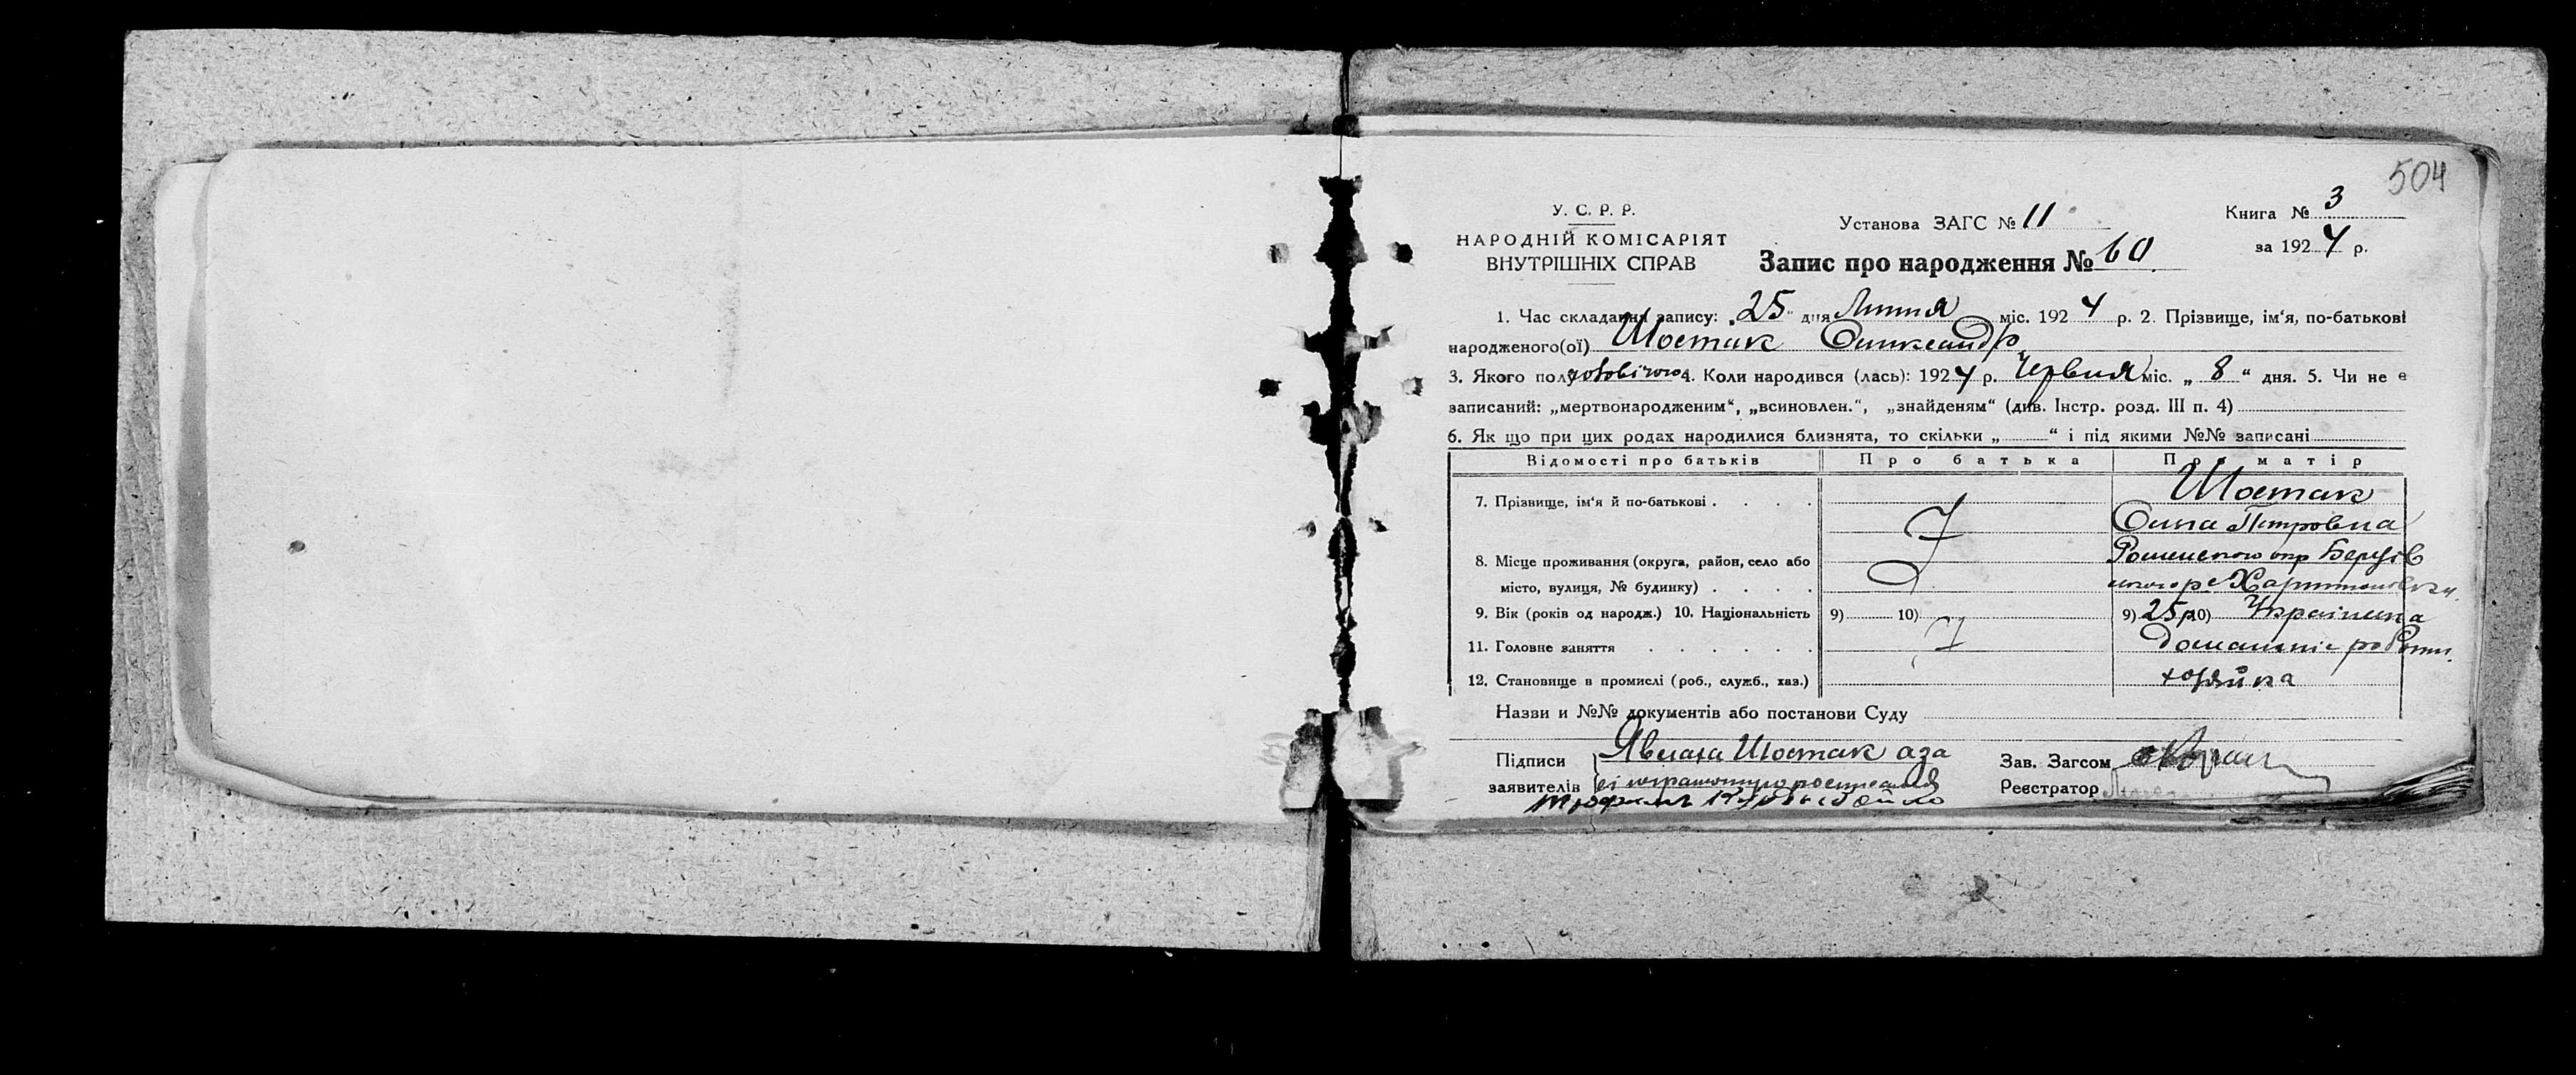 504
У. С. Р. Р.
НАРОДНІЙ КОМІСАРІЯТ
ВНУТРІШНІХ СПРАВ
Установа ЗАГС № 11
Запис про народження № 60
Книга № 3
за 1924 р.
1. Час складання запису: „25“ дня Липня міс. 1924 р. 2. Прізвище, ім'я, по-батькові
народженого(ої) Шостак Олександр
3. Якого полу чоловічого 4. Коли народився (лась): 1924 р. Червня міс. „8“ дня. 5. Чи не є
записаний: „мертвонародженим“, „всиновлен.“, „знайденям“ (див. Інстр. розд. III п. 4)
6. Як що при цих родах народилися близнята, то скільки „ “ і під якими №№ записані
Відомості про батьків Про батька Про матір
7. Прізвище, ім'я й по-батькові Шостак
Петровна
8. Місце проживання (округа, район, село або
місто, вулиця, № будинку)
Роменского окр
9. Вік (років од народж.) 10. Національність 9) 10) 9) 25 р 10) Українка
11. Головне заняття Домашні
12. Становище в промислі (роб., служб., хаз.) хозяйка
Назви и №№ документів або постанови Суду
Підписи Шостак аза
заявителів
Зав. Загсом
Реєстратор